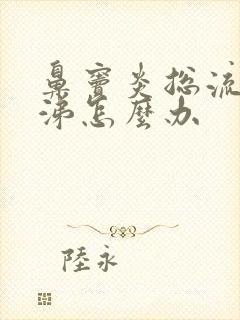 鼻窦炎总流
涕怎麼办
陸永